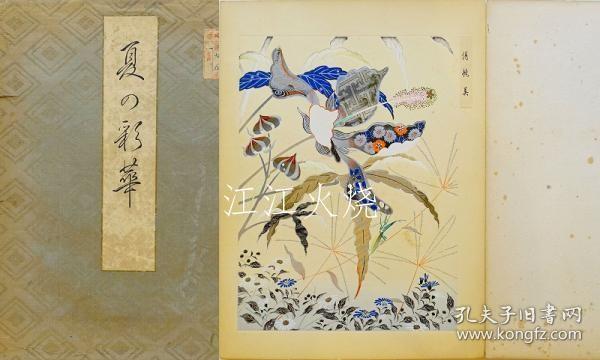 夏の彩華
江江火烧
孔夫子旧书网
www.kongfz.com